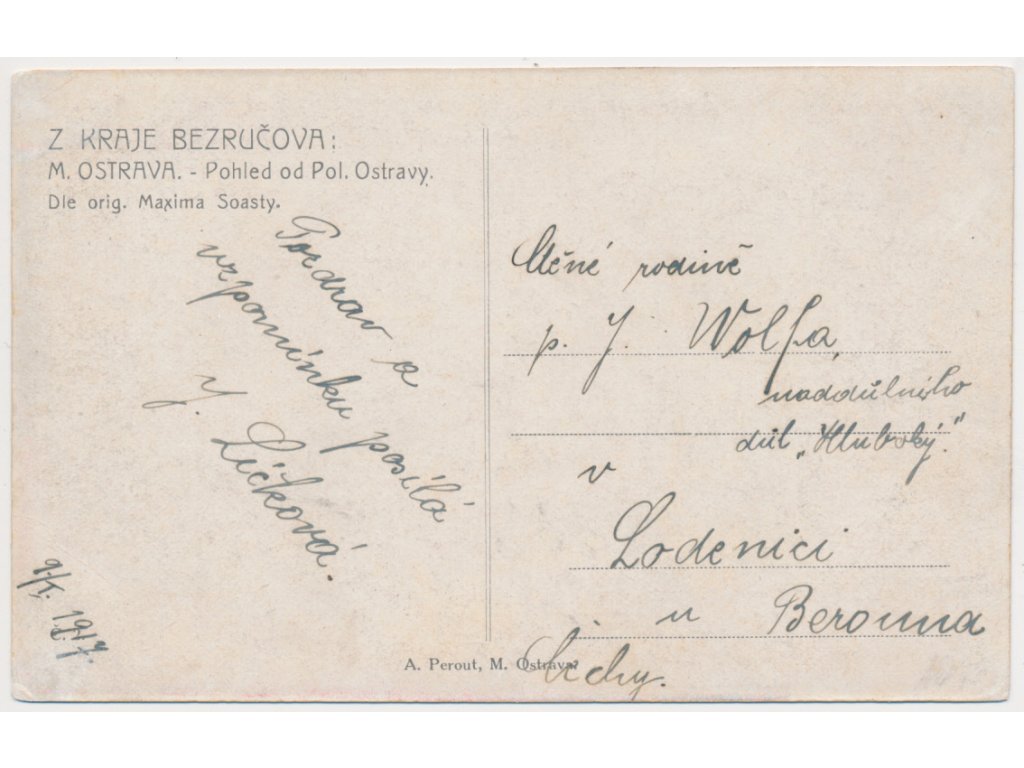 Z KRAJE BEZRUČOVA:
M. OSTRAVA. - Pohled od Pol. Ostravy.
Dle orig. Maxima Soasty.
Pozdrav a
vzpomínku posílá
J. Líčková.
9./X. 1917.
Ctěné rodině
p. J. Wolfa,
naddůlního
důl „Hluboký."
v
Lodenici
u Berouna
Čechy.
A. Perout, M. Ostrava.